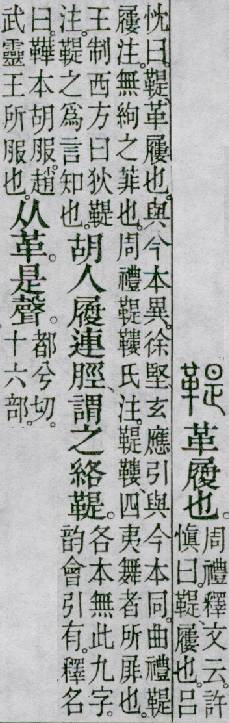 鞮革履也。
周禮釋文云。許
愼曰。鞮、履也。呂
忱曰。鞮、革履也。與今本異。徐堅、玄應引與今本同。曲禮鞮
屨注。無絇之菲也。周禮鞮鞻氏注。鞮鞻、四夷舞者所屝也。
王制西方曰狄鞮
注。鞮之爲言知也。
胡人履連脛、謂之絡鞮。
各本無此九字。
韵會引有。釋名
曰。鞾本胡服。趙
武靈王所服也。
从革。是聲。
都兮切。
十六部。